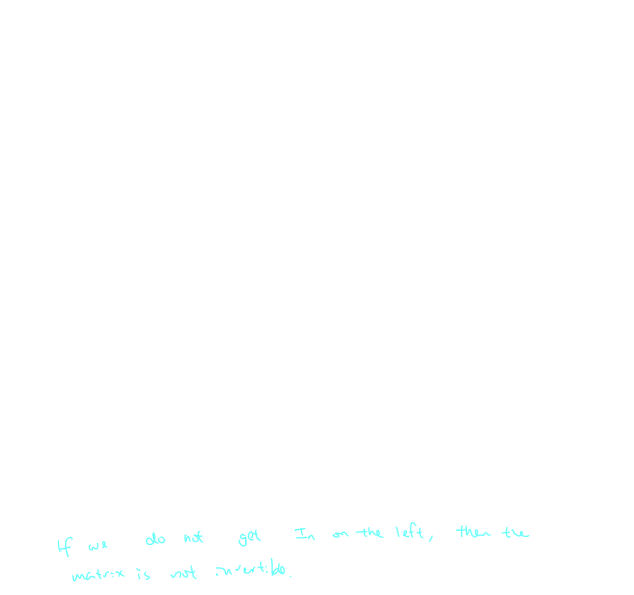 If we do not get In on the left, then the
matrix is not invertible.